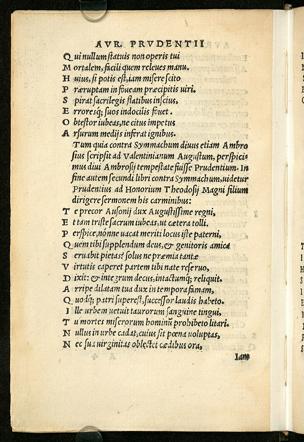 AVR. PRVDENTII
Q ui nullum statuis non operis tui
M ortalem, facili quem releues manu.
H uius, si potis est, iam miserescito
P ræruptam in foueam præcipitis uiri.
S pirat sacrilegis flatibus inscius,
E rroreq; suos indocilis fouet.
O btestor iubeas, ne citus impetus
A rsurum medijs inferat ignibus.
Tum quia contra Symmachum diuus etiam Ambro
sius scripsit ad Valentinianum Augustum, perspicis
mus diui Ambrosij tempestate fuisse Prudentium. In
fine autem secundi libri contra Symmachum, uidetur
Prudentius ad Honorium Theodosij Magni filium
dirigere sermonem his carminibus:
T e precor Ausonij dux Augustissime regni,
E t tam triste sacrum iubeas ut cætera tolli.
P erspice, nónne uacat meriti locus iste paterni,
Q uem tibi supplendum deus, & genitoris amica
S eruabit pietas? solus ne præmia tantæ
V irtutis caperet partem tibi nate reseruo,
D ixit: & integrum decus, intactumq; reliquit.
A rripe dilatam tua dux in tempora famam,
Q uodq; patri superest, successor laudis habeto.
I lle urbem uetuit taurorum sanguine tingui,
T u mortes miserorum hominũ prohibeto litari.
N ullus in urbe cadat, cuius sit pœna uoluptas,
N ec sua uirginitas oblectet cædibus ora,
Iam